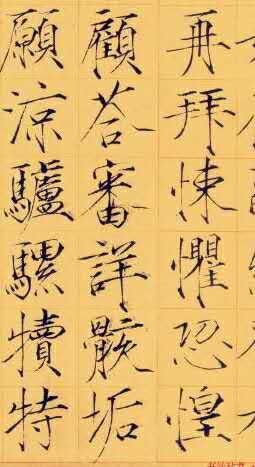 再拜悚懼恐惶
顧荅審詳骸垢
願涼驢騾犢特